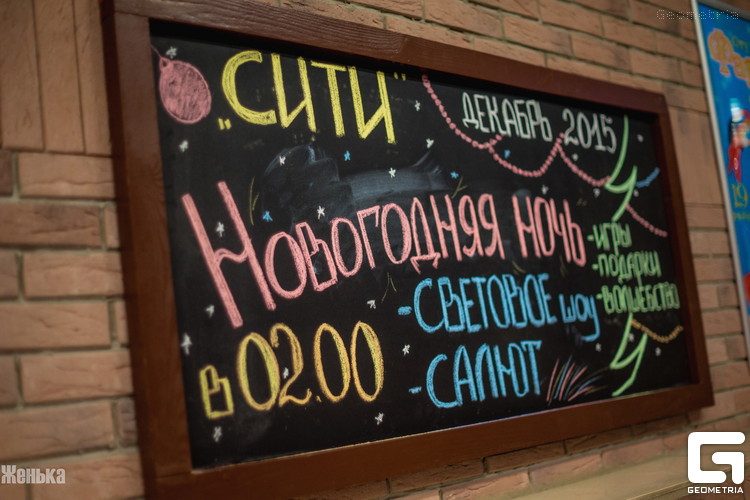 Geometria
„СИТИ"
ДЕКАБРЬ 2015
НОВОГОДНЯЯ НОЧЬ
-ИГРЫ
-ПОДАРКИ
-ВОЛШЕБСТВО
В 02.00
-СВЕТОВОЕ шоу
-САЛЮТ
Женька
GEOMETRIA